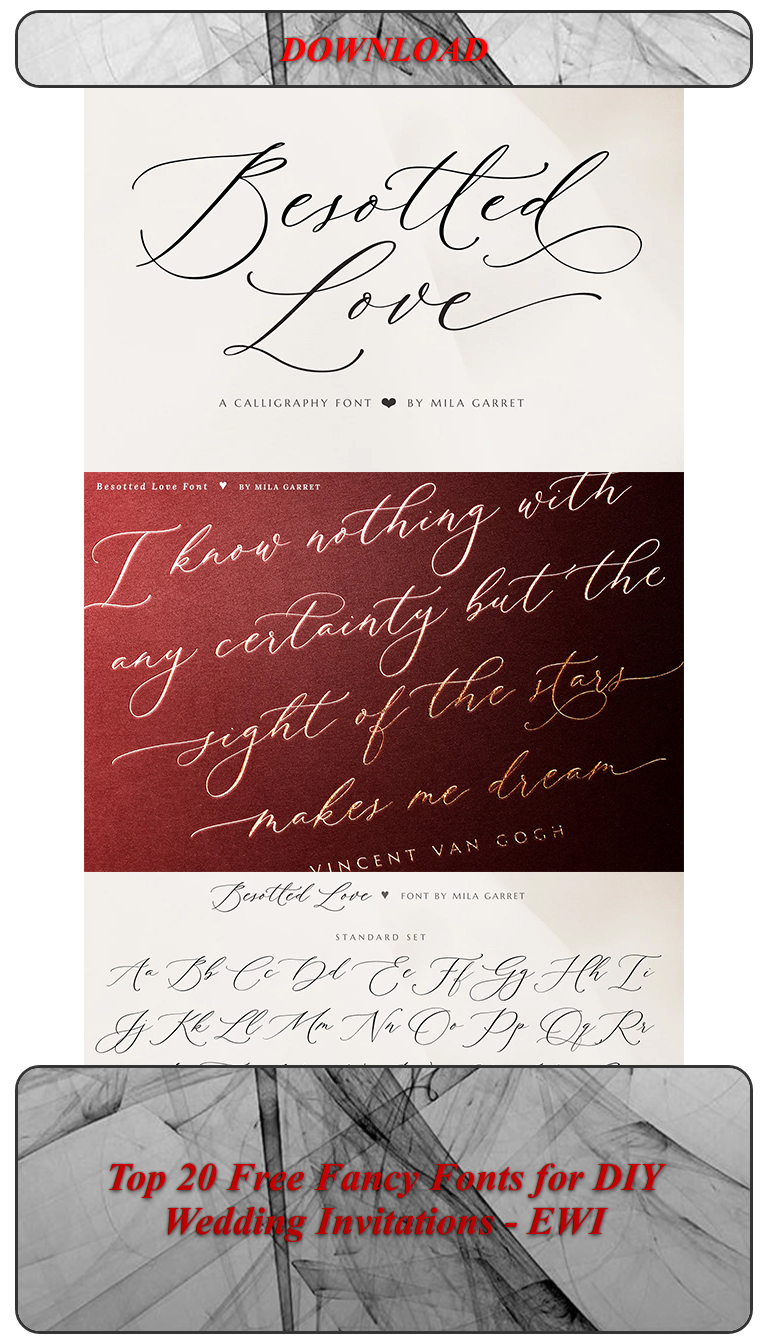 DOWNLOAD
Besotted
Love
A CALLIGRAPHY FONT ❤ BY MILA GARRET
Besotted Love Font ♥ BY MILA GARRET
I know nothing with
any certainty but the
sight of the stars
makes me dream
VINCENT VAN GOGH
Besotted Love ♥ FONT BY MILA GARRET
STANDARD SET
Aa Bb Cc Dd Ee Ff Gg Hh Ii
Jj Kk Ll Mm Nn Oo Pp Qq Rr
Top 20 Free Fancy Fonts for DIY
Wedding Invitations - EWI